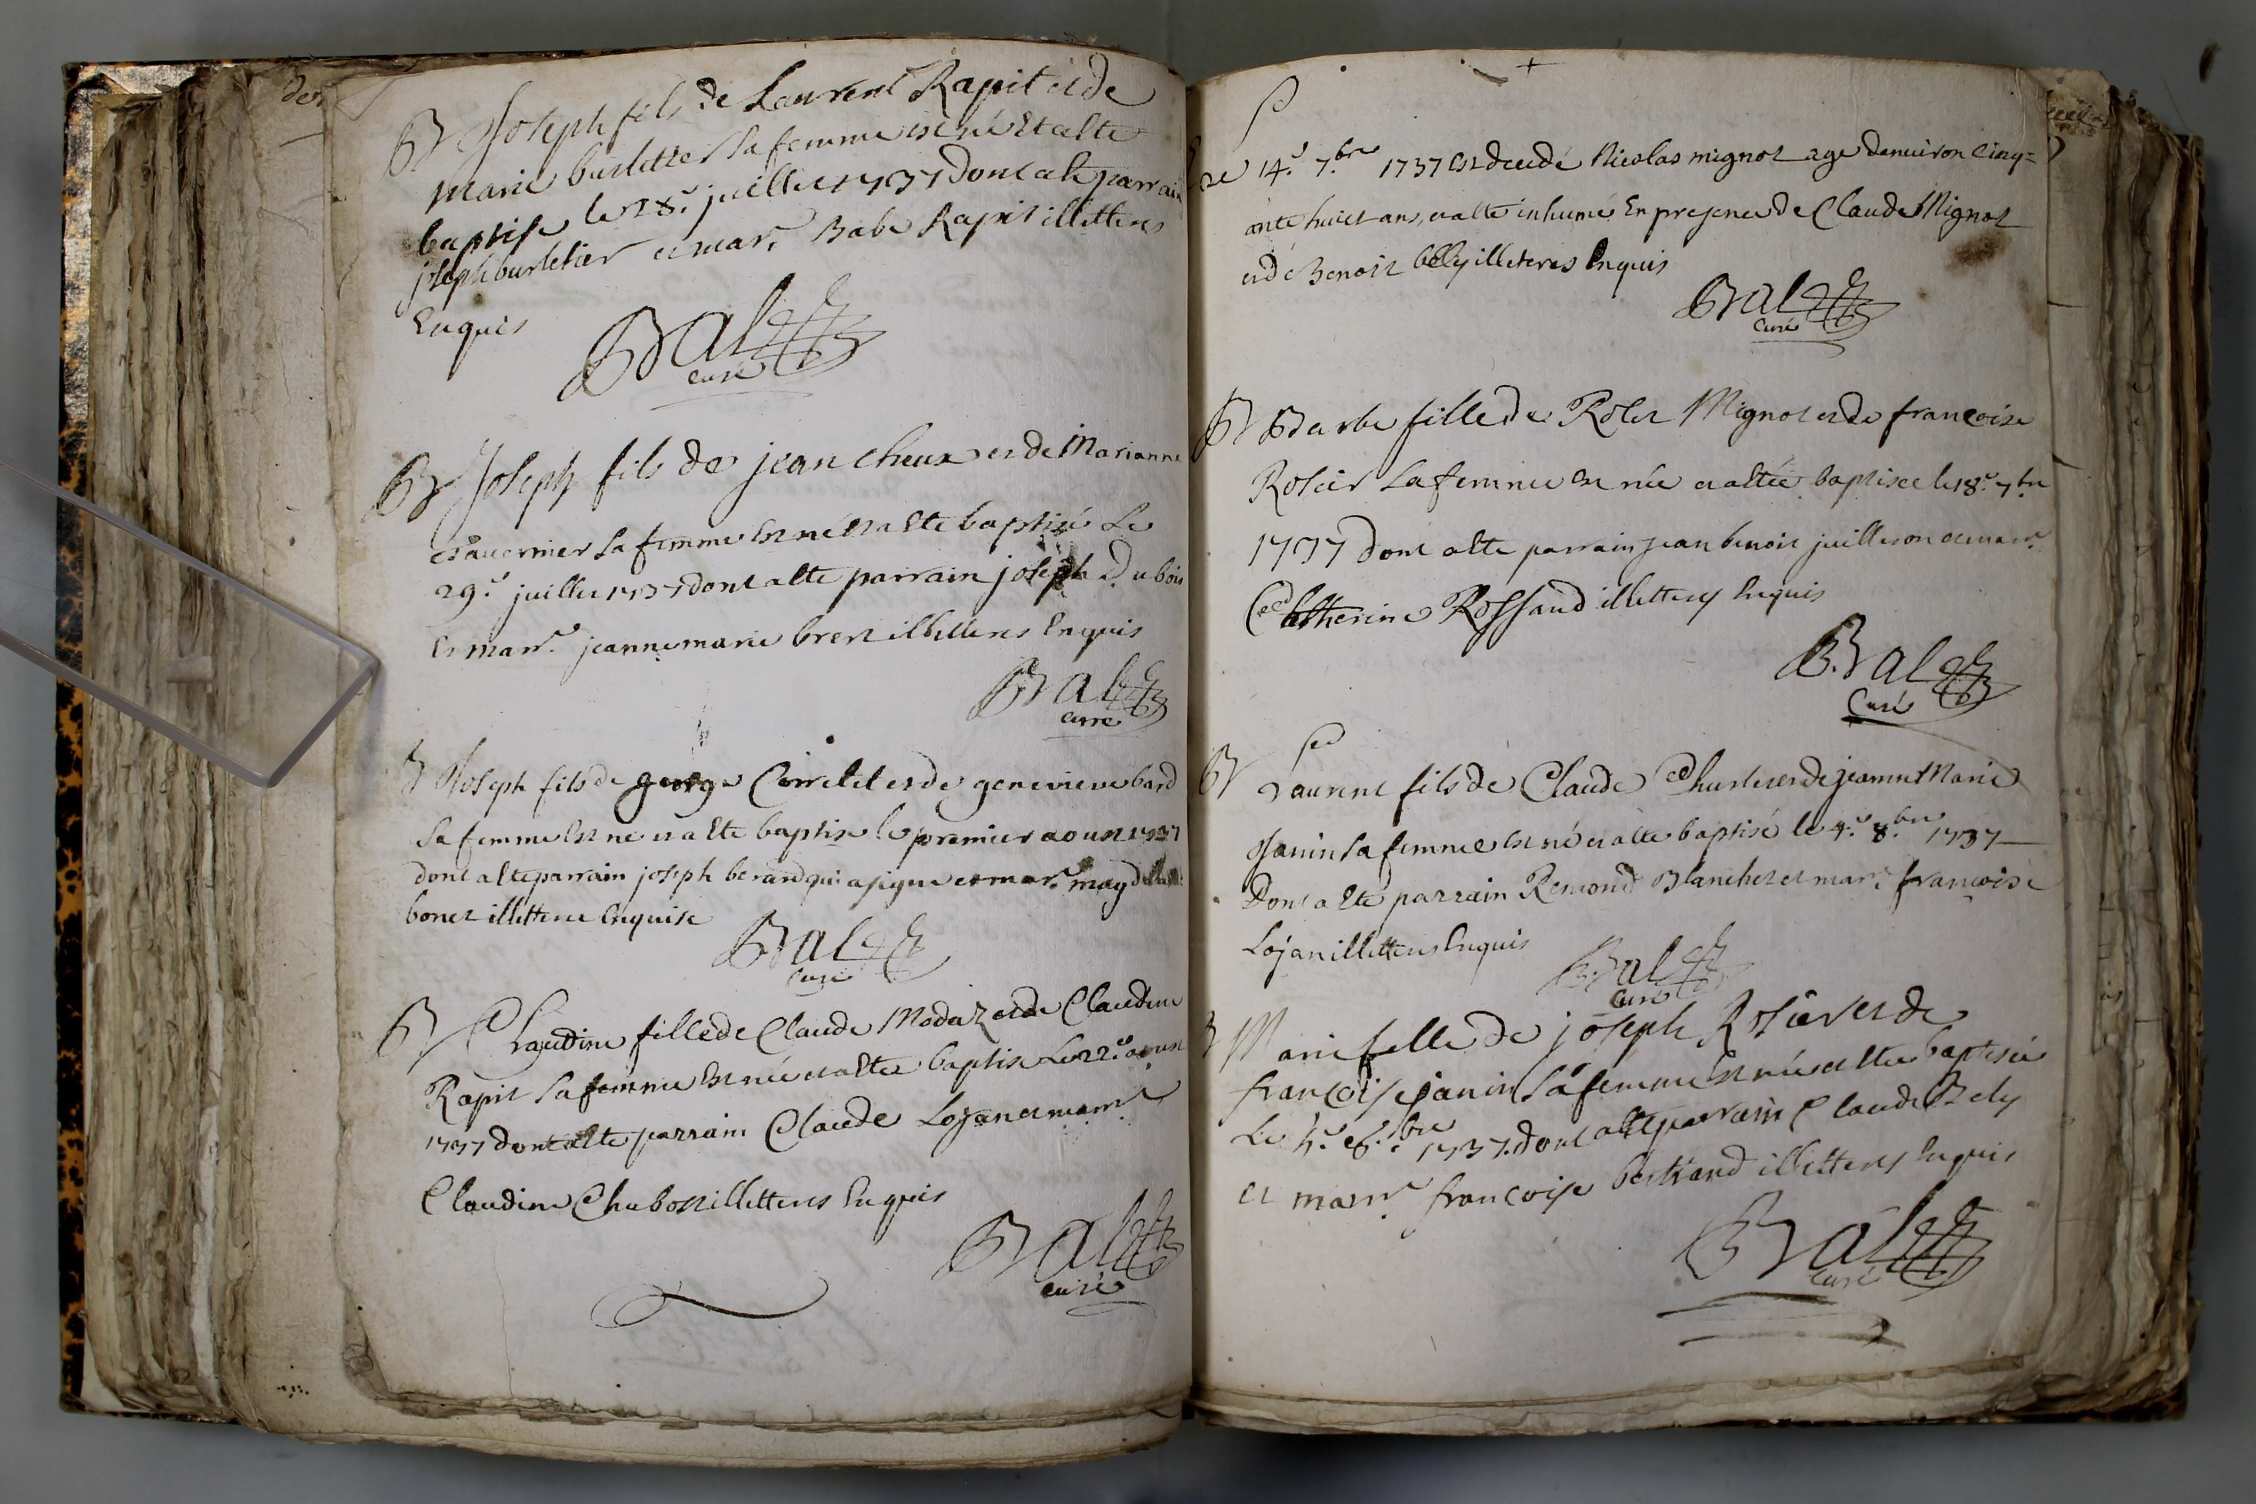 B Joseph fils de Laurent Rapit et de
marie burletier sa femme est né Et a Ete
baptise le 28.e juillet 1737 dont a ete parrain
joseph burletier et mar.e Babe Rapit illitteres
Enquis
Bal
curé
B Joseph fils de jean cheux et de Marianne
sa femme Est né Et a Ete baptizé Le
29.e juillet 1737 dont a Ete parrain joseph Dubois
Et marr.e jeanne marie bret illitteres Enquis
Bal
curé
B Joseph fils de george et de genevieve bard
sa femme Est ne et a Ete baptise le premier aoust 1737
dont a Ete parrain joseph berard qui a signe et mar.e
bonet illitteree Enquise
Bal
curé
B Claudine fille de Claude Modaz et de Claudine
Rapit sa femme Est née et a Etee baptise Le 22.e aoust
1737 dont a Ete parrain Claude Lojan et marr.e
Claudine Chabot illitteres Enquis
Bal
curé
S
Le 14.e 7.bre 1737 Est decedé Nicolas mignot age denviron Cinq=
ante huict ans, et a Ete inhumé En presence de Claude Mignot
et de Benoit bely illeteres Enquis
Bal
curé
B Barbe fille de Mignot et de francoise
Rosier sa femme Est née et a Etée baptisee le 18.e 7.bre
1737 dont a Ete parrain jean benoit juilleron et marr.e
Catherine Rossand illitterés Enquis
B. Bal
Curé
B Laurent fils de Claude et de jeanne Marie
Janin sa femme Est né et a Ete baptisé le 4.e 8.bre 1737
Dont a Ete parrain Remond Blanchet et mar.e francoise
Lojan illitteres Enquis
B. Bal
curé
B Marie fille de joseph Rosier et de
francoise janin sa femme Est née et a Etee baptisée
Le 1737. dont a Ete parrain Claude Bely
Et marr.e francoise bertrand illitteres Enquis
Bal
curé